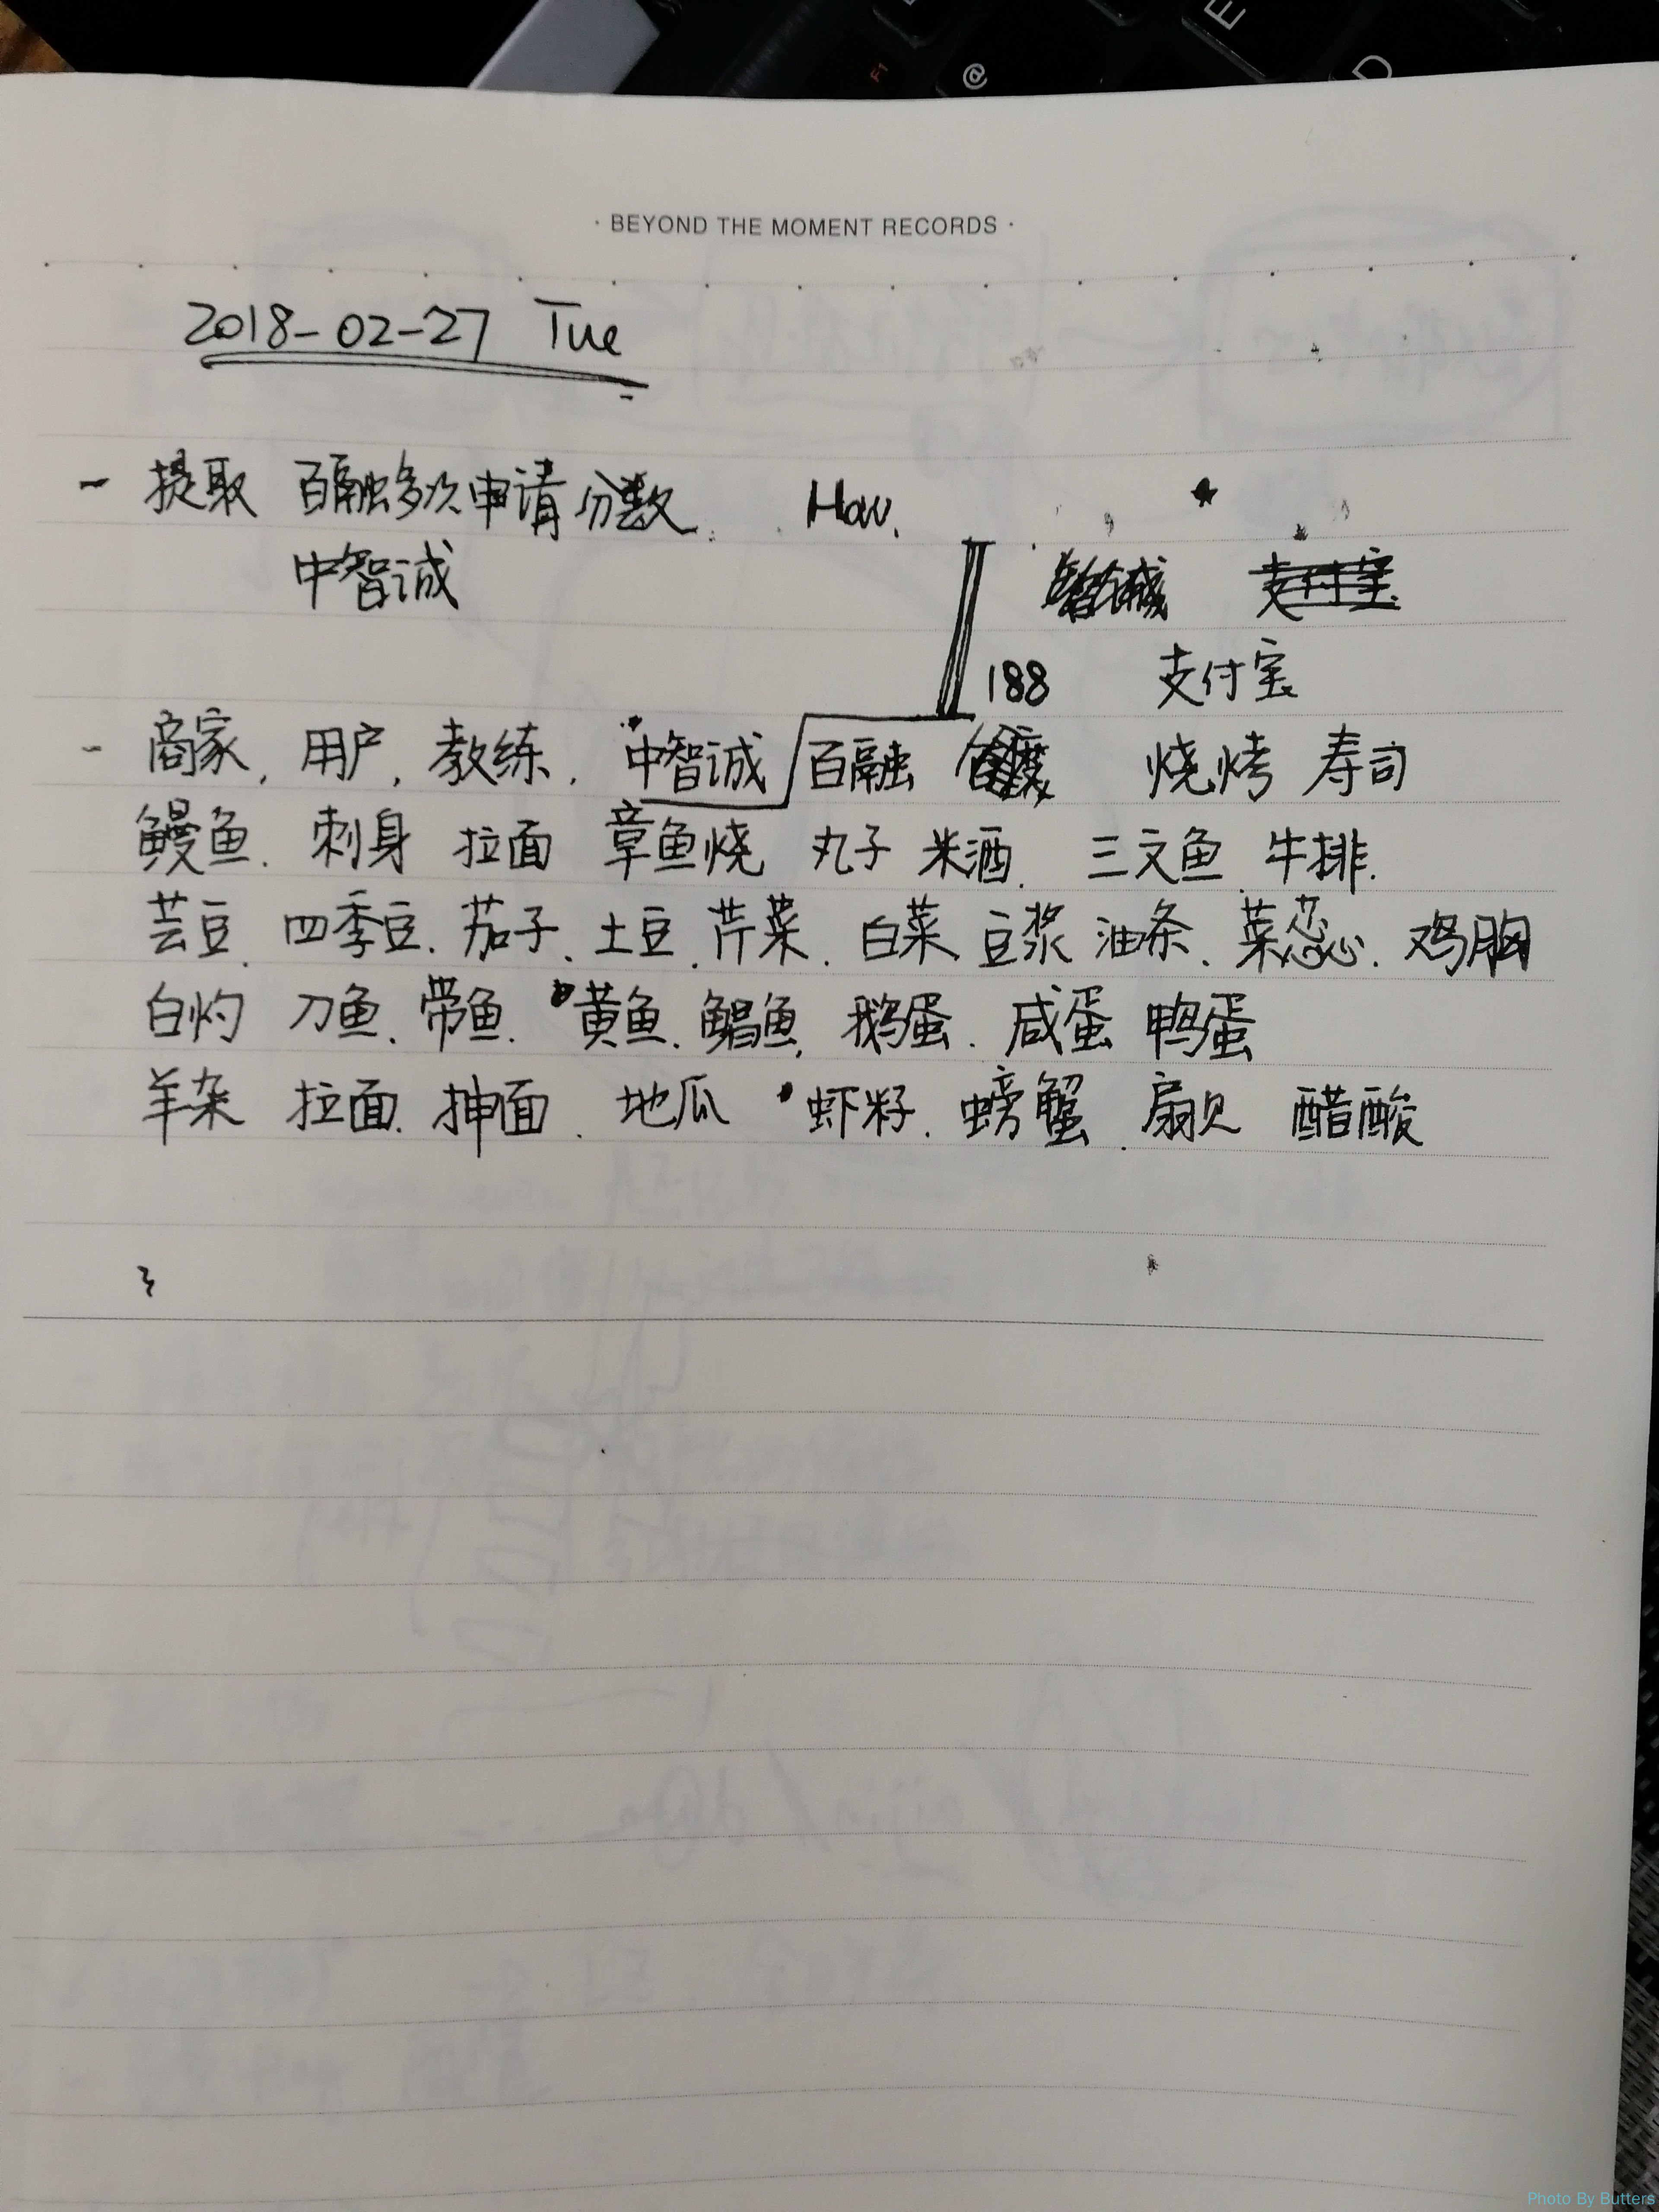 E
F1
@
D
· BEYOND THE MOMENT RECORDS ·
2018-02-27 Tue
- 提取 百融多次申请分数. How.
中智诚 智诚 支付宝
188 支付宝
- 商家, 用户, 教练, 中智诚 百融 烧烤 寿司
鳗鱼. 刺身 拉面 章鱼烧 丸子 米酒. 三文鱼 牛排.
芸豆. 四季豆. 茄子. 土豆. 芹菜. 白菜 豆浆 油条. 菜蕊. 鸡胸
白灼 刀鱼. 带鱼. 黄鱼. 鲳鱼, 鹅蛋. 咸蛋 鸭蛋
羊杂 拉面. 抻面. 地瓜 虾籽. 螃蟹. 扇贝 醋酸
Photo By Butters